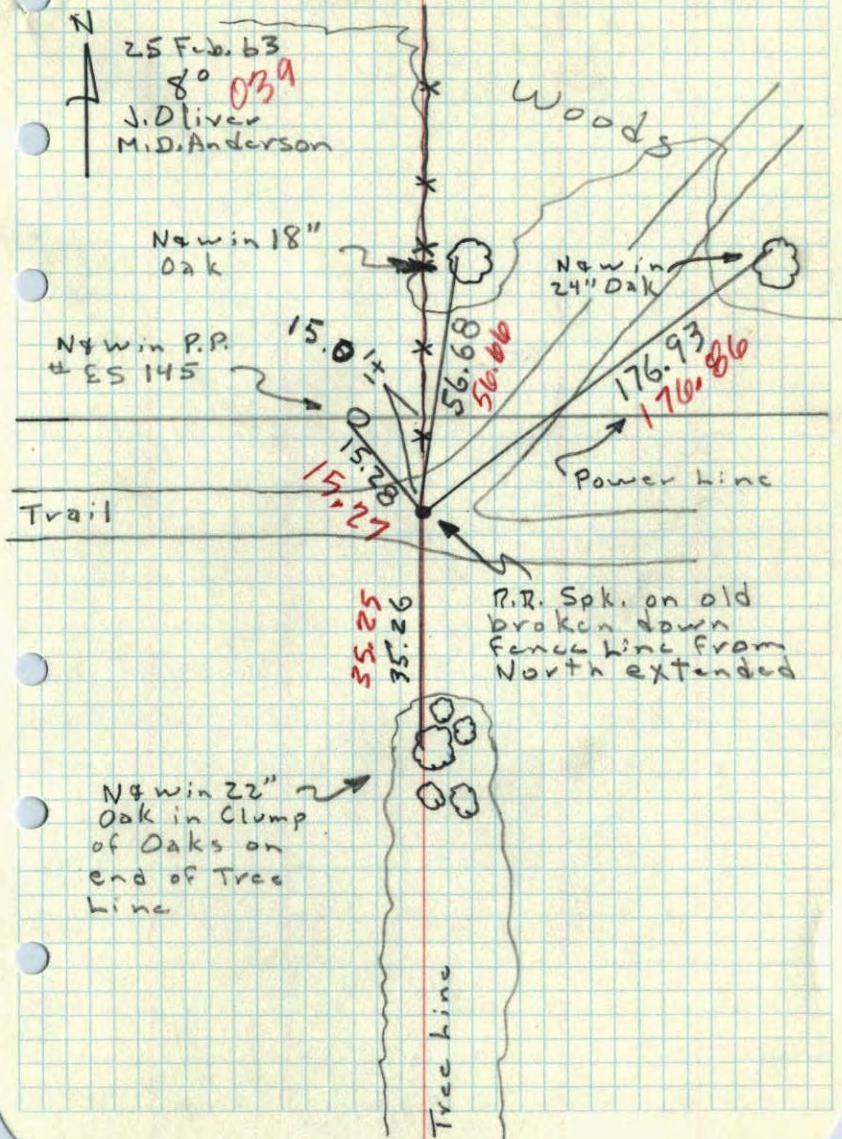 N
25 Feb. 63
8° 039
J. Oliver
M.D. Anderson
Woods
N&W in 18"
Oak
N&W in
24" Oak
N&W in P.P.
# ES 145
15.0
56.68
56.66
176.93
176.86
15.28
15.27
Power Line
Trail
R.R. Spk. on old
broken down
Fence Line From
North extended
35.25
35.26
N&W in 22"
Oak in Clump
of Oaks on
end of Tree
Line
Tree Line